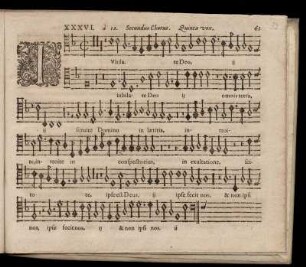 XXXVI. à 12. Secundus Chorus. Quinta vox. 61
I Vbila- te Deo, ij
iubila- te Deo ij omnis terra,
ij seruite Domino in lætitia, in-
in exultatione. sci-
to- te, ipse est Deus, ij ipse fecit nos, & non ipsi
nos, ipse fecit nos, ij & non ipsi nos. ij